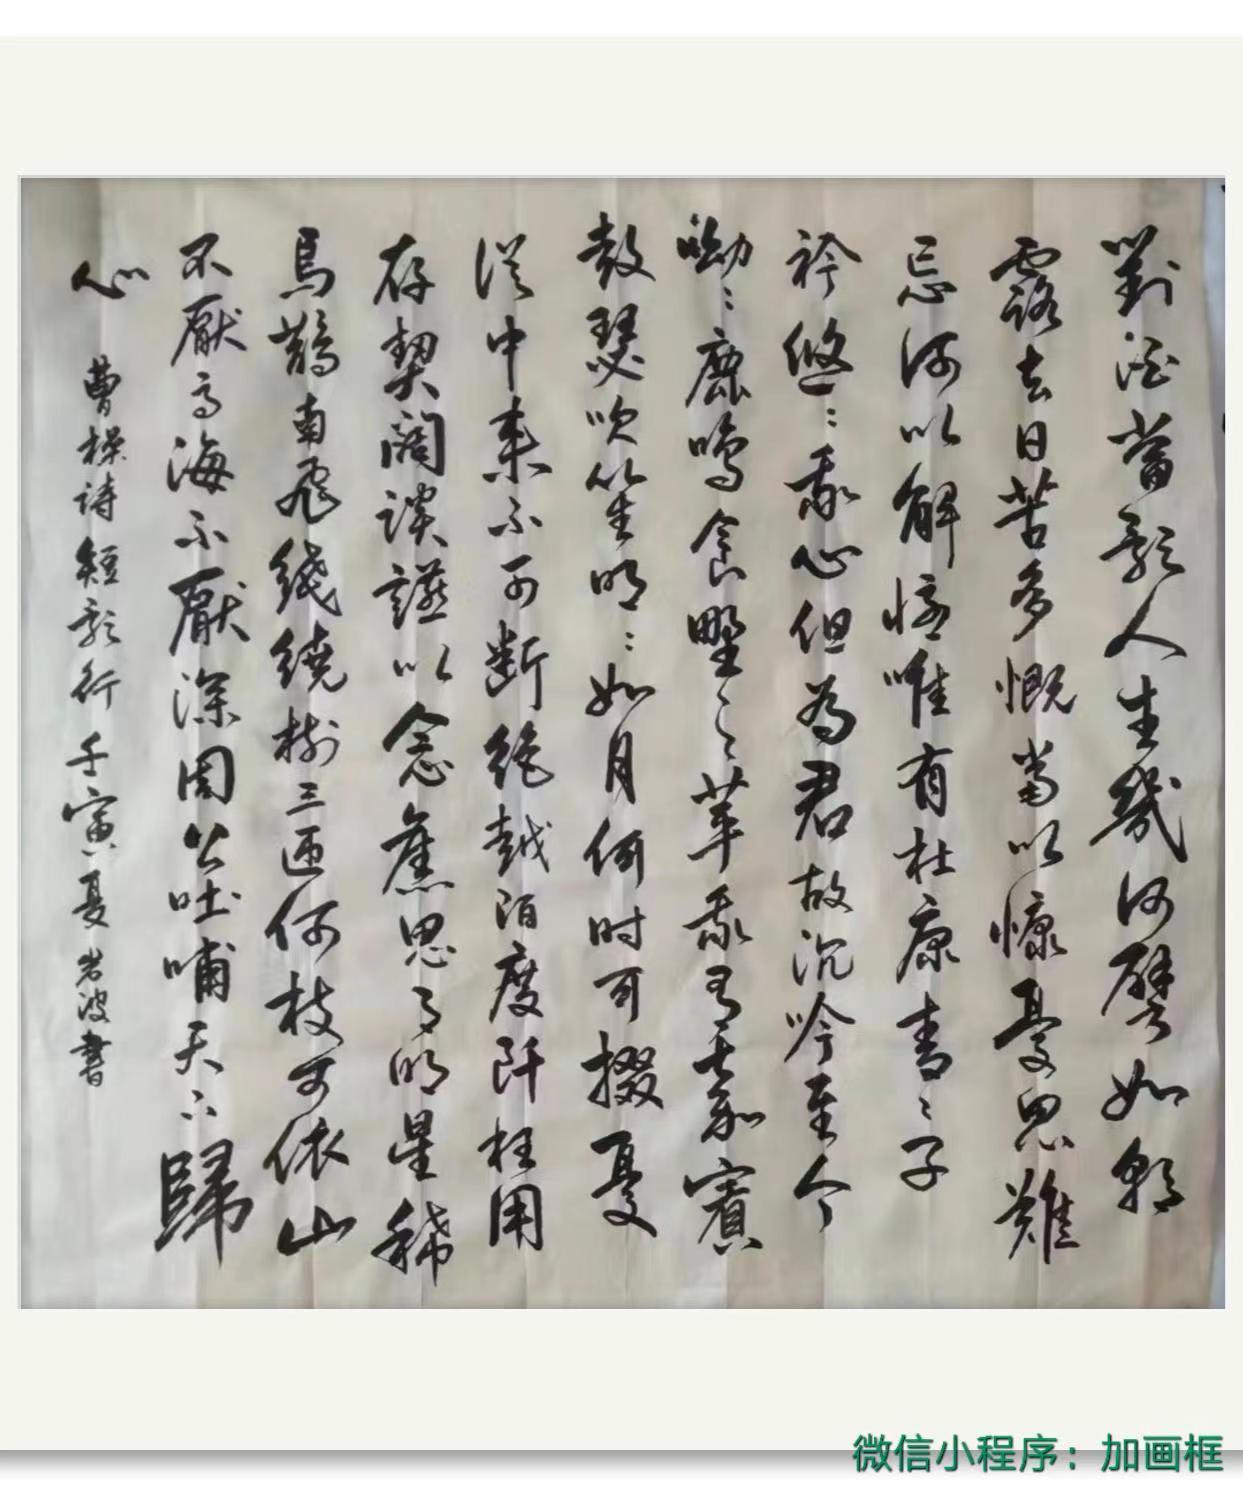 對酒當歌人生幾何譬如朝
露去日苦多慨當以慷憂思難
忘何以解忧唯有杜康青〻子
衿悠〻我心但為君故沉吟至今
呦〻鹿鳴食野之〻苹我有嘉賓
鼓瑟吹笙明〻如月何时可掇憂
從中來不可斷絕越陌度阡枉用
存契闊談讌以念舊思月明星稀
烏鵲南飛綫繞樹三匝何枝可依山
不厭高海不厭深周公吐哺天下歸
心
曹操詩短歌行 壬寅夏岩波書
微信小程序：加画框